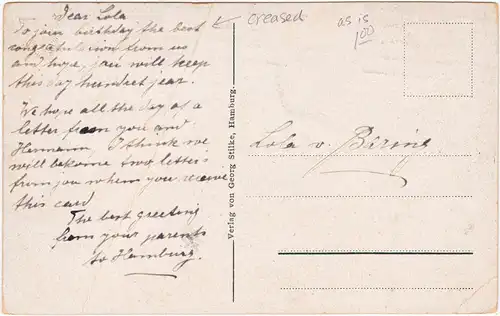 Dear Lola
To join birthday the best
congratulation from us
and hope, you will keep
this day hundret jear.
We hope all the day of a
letter from you and
Hermann. I think we
will become two letters
from you when you receive
this card
The best greeting
from your parents
to Hamburg.
creased
as is
1.00
Verlag von Georg Stilke, Hamburg.
Lola v. Bering